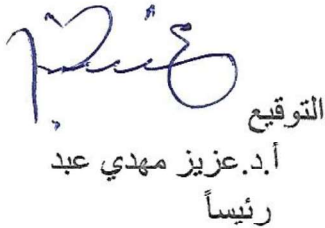 التوقيع
أ.د.عزيز مهدي عبد
رئيساً